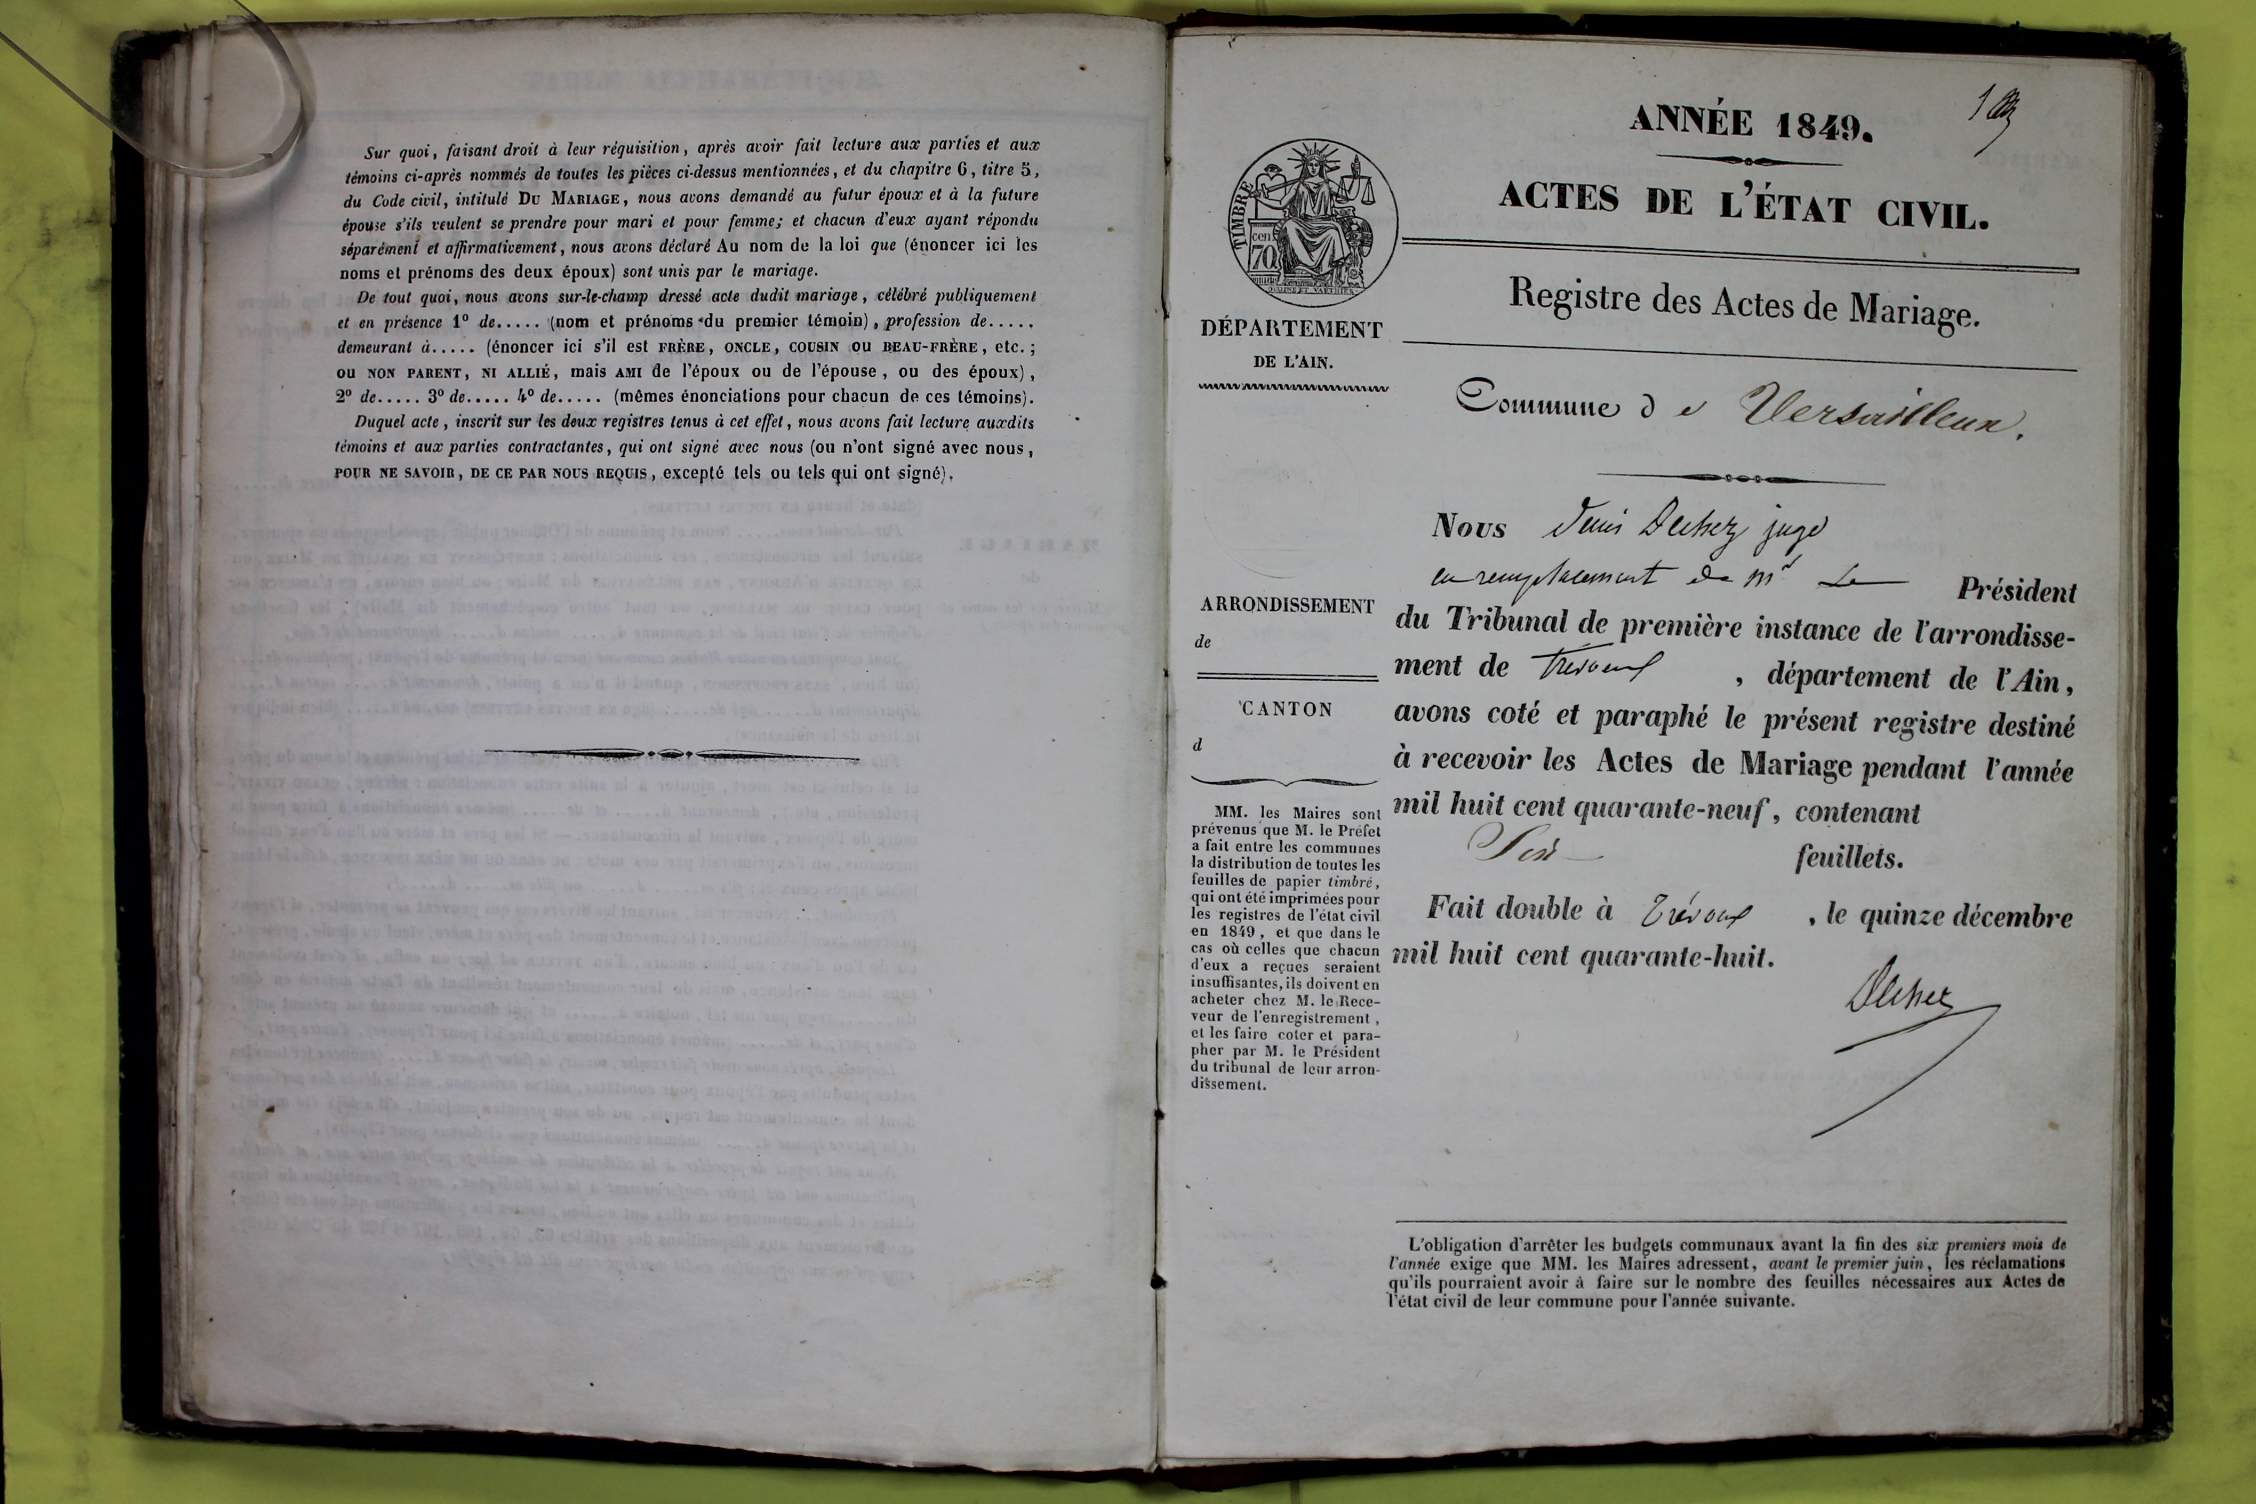 Sur quoi, faisant droit à leur réquisition, après avoir fait lecture aux parties et aux
témoins ci-après nommés de toutes les pièces ci-dessus mentionnées, et du chapitre 6, titre 5,
du Code civil, intitulé DU MARIAGE, nous avons demandé au futur époux et à la future
épouse s'ils veulent se prendre pour mari et pour femme; et chacun d'eux ayant répondu
séparément et affirmativement, nous avons déclaré Au nom de la loi que (énoncer ici les
noms et prénoms des deux époux) sont unis par le mariage.
De tout quoi, nous avons sur-le-champ dressé acte dudit mariage, célébré publiquement
et en présence 1º de..... (nom et prénoms du premier témoin), profession de.....
demeurant à..... (énoncer ici s'il est FRÈRE, ONCLE, COUSIN OU BEAU-FRÈRE, etc.;
OU NON PARENT, NI ALLIÉ, mais AMI de l'époux ou de l'épouse, ou des époux),
2º de..... 3º de..... 4º de..... (mêmes énonciations pour chacun de ces témoins).
Duquel acte, inscrit sur les deux registres tenus à cet effet, nous avons fait lecture auxdits
témoins et aux parties contractantes, qui ont signé avec nous (ou n'ont signé avec nous,
POUR NE SAVOIR, DE CE PAR NOUS REQUIS, excepté tels ou tels qui ont signé).
ANNÉE 1849.
ACTES DE L'ÉTAT CIVIL.
Registre des Actes de Mariage.
TIMBRE
cen.
70
DÉPARTEMENT
DE L'AIN.
Commune de Versailleux.
Nous Denis Duhez juge
en remplacement de Mr Le Président
du Tribunal de première instance de l'arrondisse-
ment de Trévoux, département de l'Ain,
avons coté et paraphé le présent registre destiné
à recevoir les Actes de Mariage pendant l'année
mil huit cent quarante-neuf, contenant
feuillets.
Fait double à Trévoux, le quinze décembre
mil huit cent quarante-huit.
ARRONDISSEMENT
de
CANTON
d
MM. les Maires sont
prévenus que M. le Préfet
a fait entre les communes
la distribution de toutes les
feuilles de papier timbré,
qui ont été imprimées pour
les registres de l'état civil
en 1849, et que dans le
cas où celles que chacun
d'eux a reçues seraient
insuffisantes, ils doivent en
acheter chez M. le Rece-
veur de l'enregistrement,
et les faire coter et para-
pher par M. le Président
du tribunal de leur arron-
dissement.
L'obligation d'arrêter les budgets communaux avant la fin des six premiers mois de
l'année exige que MM. les Maires adressent, avant le premier juin, les réclamations
qu'ils pourraient avoir à faire sur le nombre des feuilles nécessaires aux Actes de
l'état civil de leur commune pour l'année suivante.